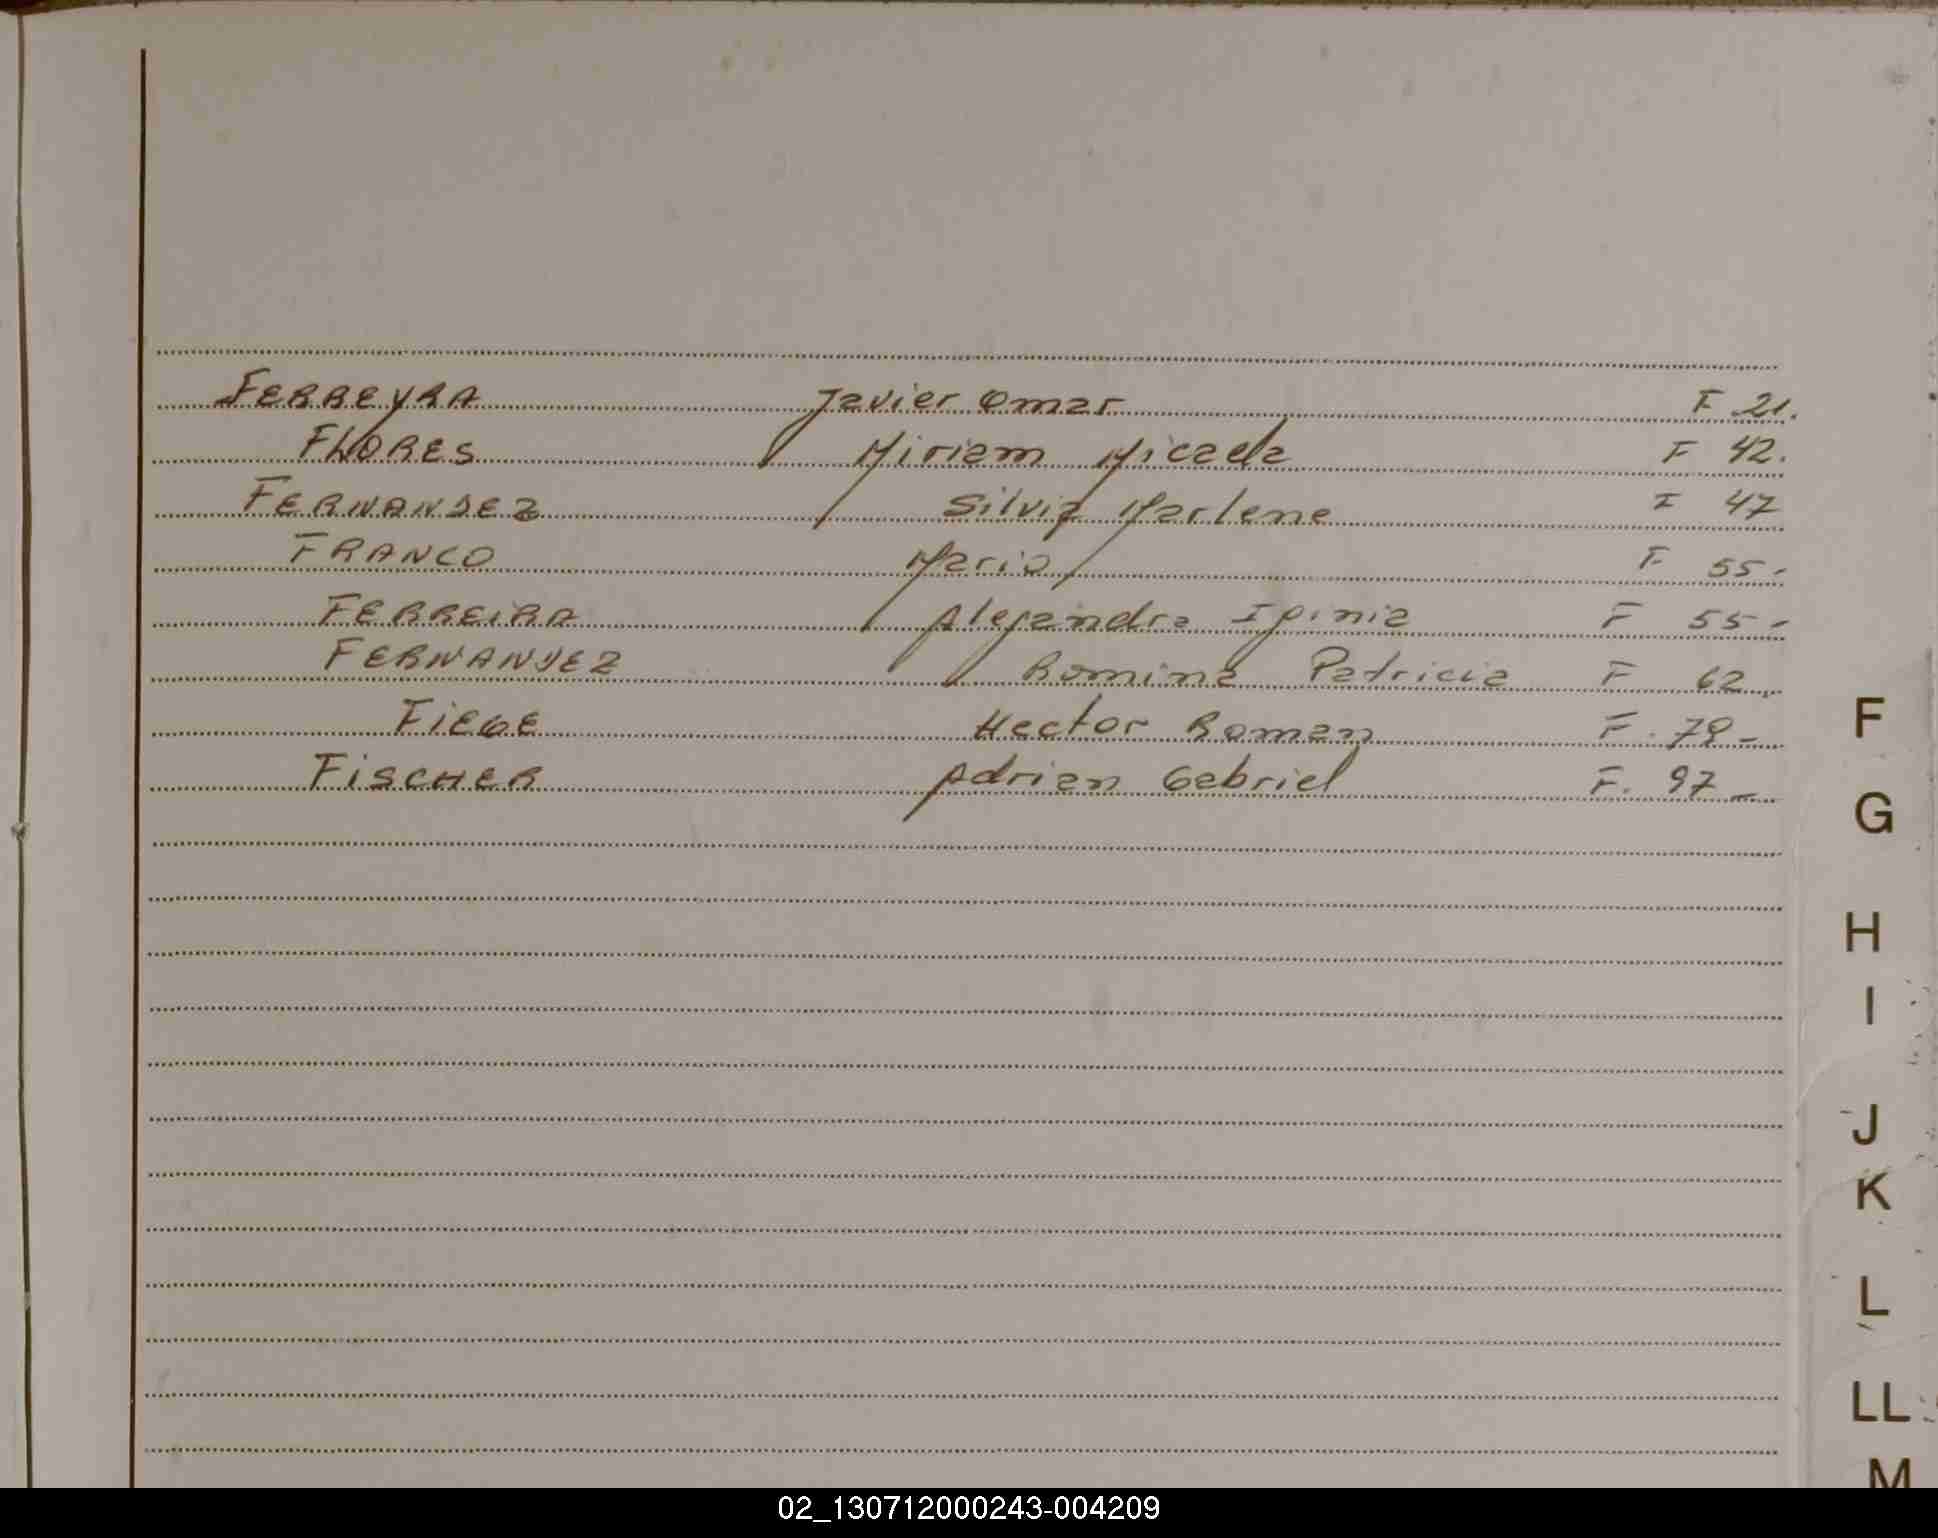 FERREYRA Javier Omar F 21.
FLORES Miriam Micaela F 42.
FERNANDEZ Silvia Marlene F 47
FRANCO Mario F 55-
FERREIRA Alejandra Iginia F 55-
FERNANDEZ Romina Patricia F 62.
FIEGE Hector Roman F. 79-
FISCHER Adrian Gabriel F. 97-
F
G
H
I
J
K
L
LL
M
02_130712000243-004209